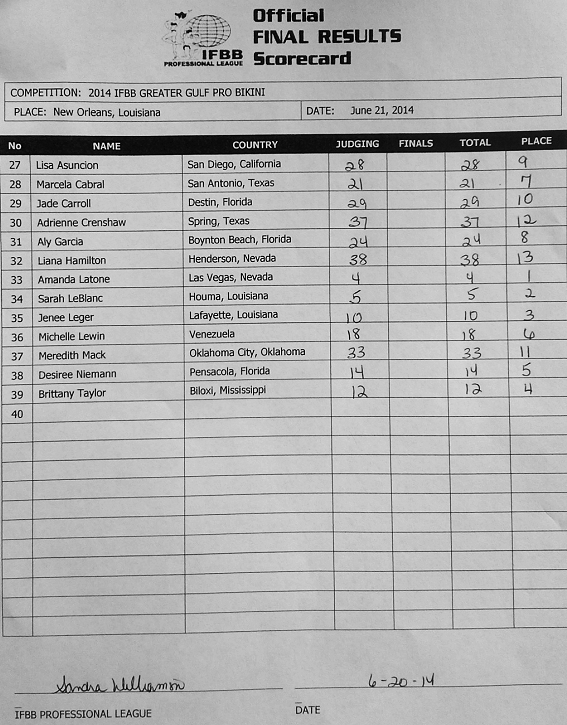 Official
FINAL RESULTS
Scorecard
IFBB
PROFESSIONAL LEAGUE
COMPETITION: 2014 IFBB GREATER GULF PRO BIKINI
PLACE: New Orleans, Louisiana DATE: June 21, 2014
No NAME COUNTRY JUDGING FINALS TOTAL PLACE
27 Lisa Asuncion San Diego, California 28 28 9
28 Marcela Cabral San Antonio, Texas 21 21 7
29 Jade Carroll Destin, Florida 29 29 10
30 Adrienne Crenshaw Spring, Texas 37 37 12
31 Aly Garcia Boynton Beach, Florida 24 24 8
32 Liana Hamilton Henderson, Nevada 38 38 13
33 Amanda Latone Las Vegas, Nevada 4 4 1
34 Sarah LeBlanc Houma, Louisiana 5 5 2
35 Jenee Leger Lafayette, Louisiana 10 10 3
36 Michelle Lewin Venezuela 18 18 6
37 Meredith Mack Oklahoma City, Oklahoma 33 33 11
38 Desiree Niemann Pensacola, Florida 14 14 5
39 Brittany Taylor Biloxi, Mississippi 12 12 4
40
Sandra Williamson 6-20-14
IFBB PROFESSIONAL LEAGUE DATE